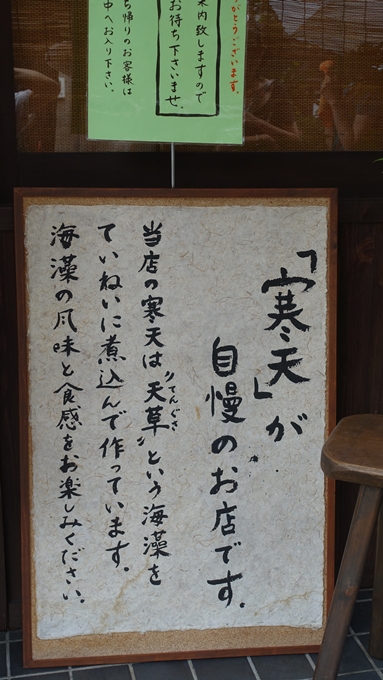 がとうございます。
案内致しますので
お待ち下さいませ。
ち帰りのお客様は
中へお入り下さい。
「寒天」が
自慢のお店です。
当店の寒天は〝天草〟という海藻を
てんぐさ
ていねいに煮込んで作っています。
海藻の風味と食感をお楽しみください。